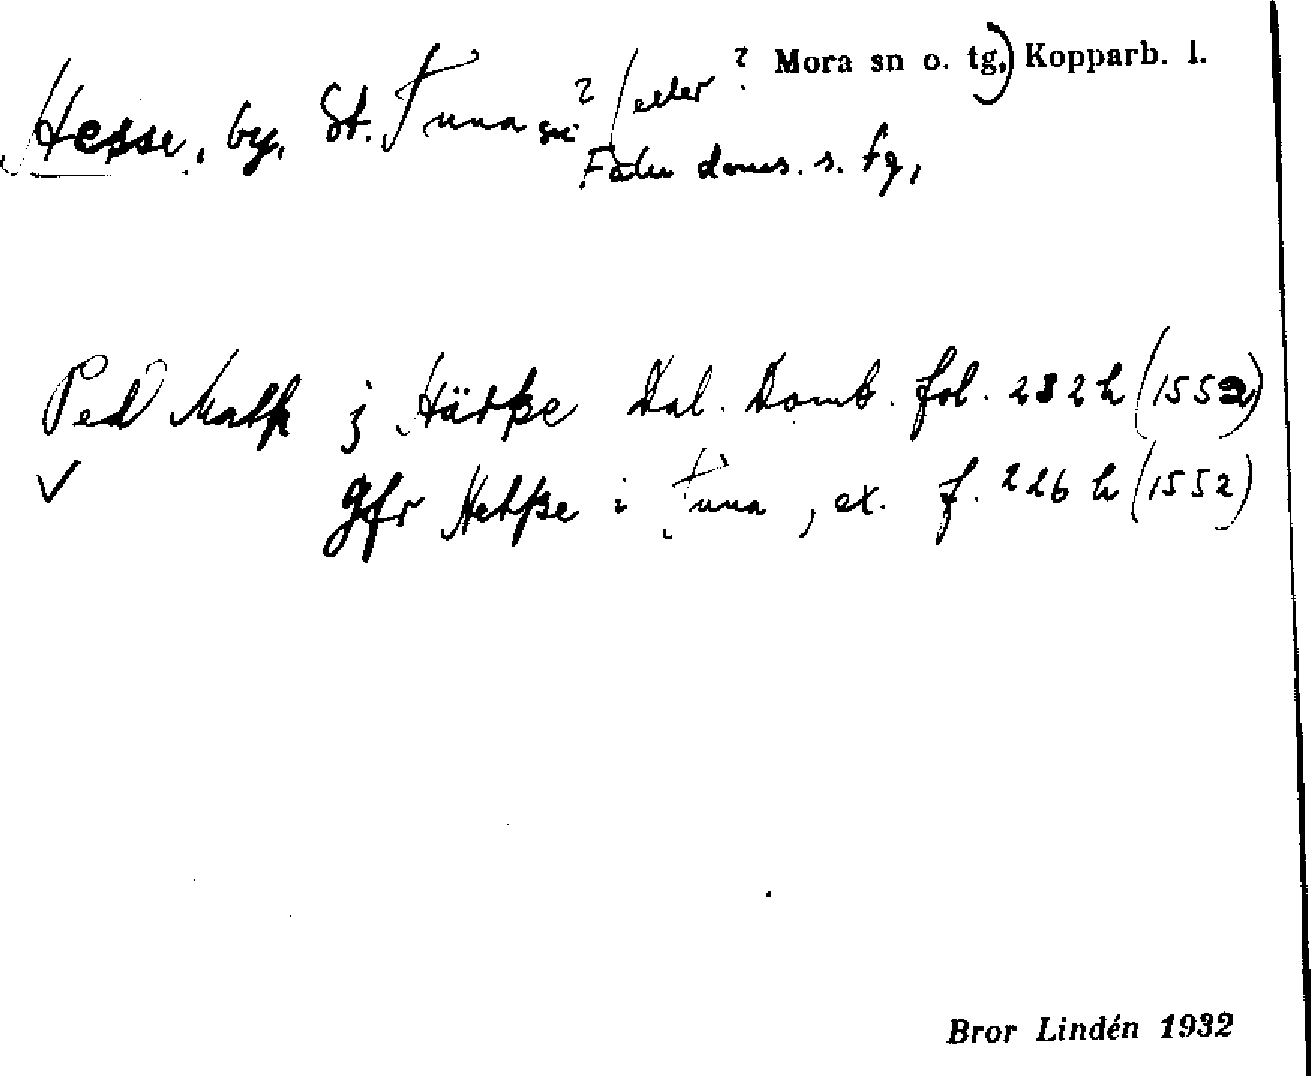 Hesse, by, St. Tuna sn ? (eller ? Mora sn o. tg,) Kopparb. l.
Falu doms. s. tg,
Ped Matß j Hätße Dal. Domb. fol. 232 h (1552)
✓ Jfr Hetße i Tuna, ex. f. 226 h (1552)
Bror Lindén 1932